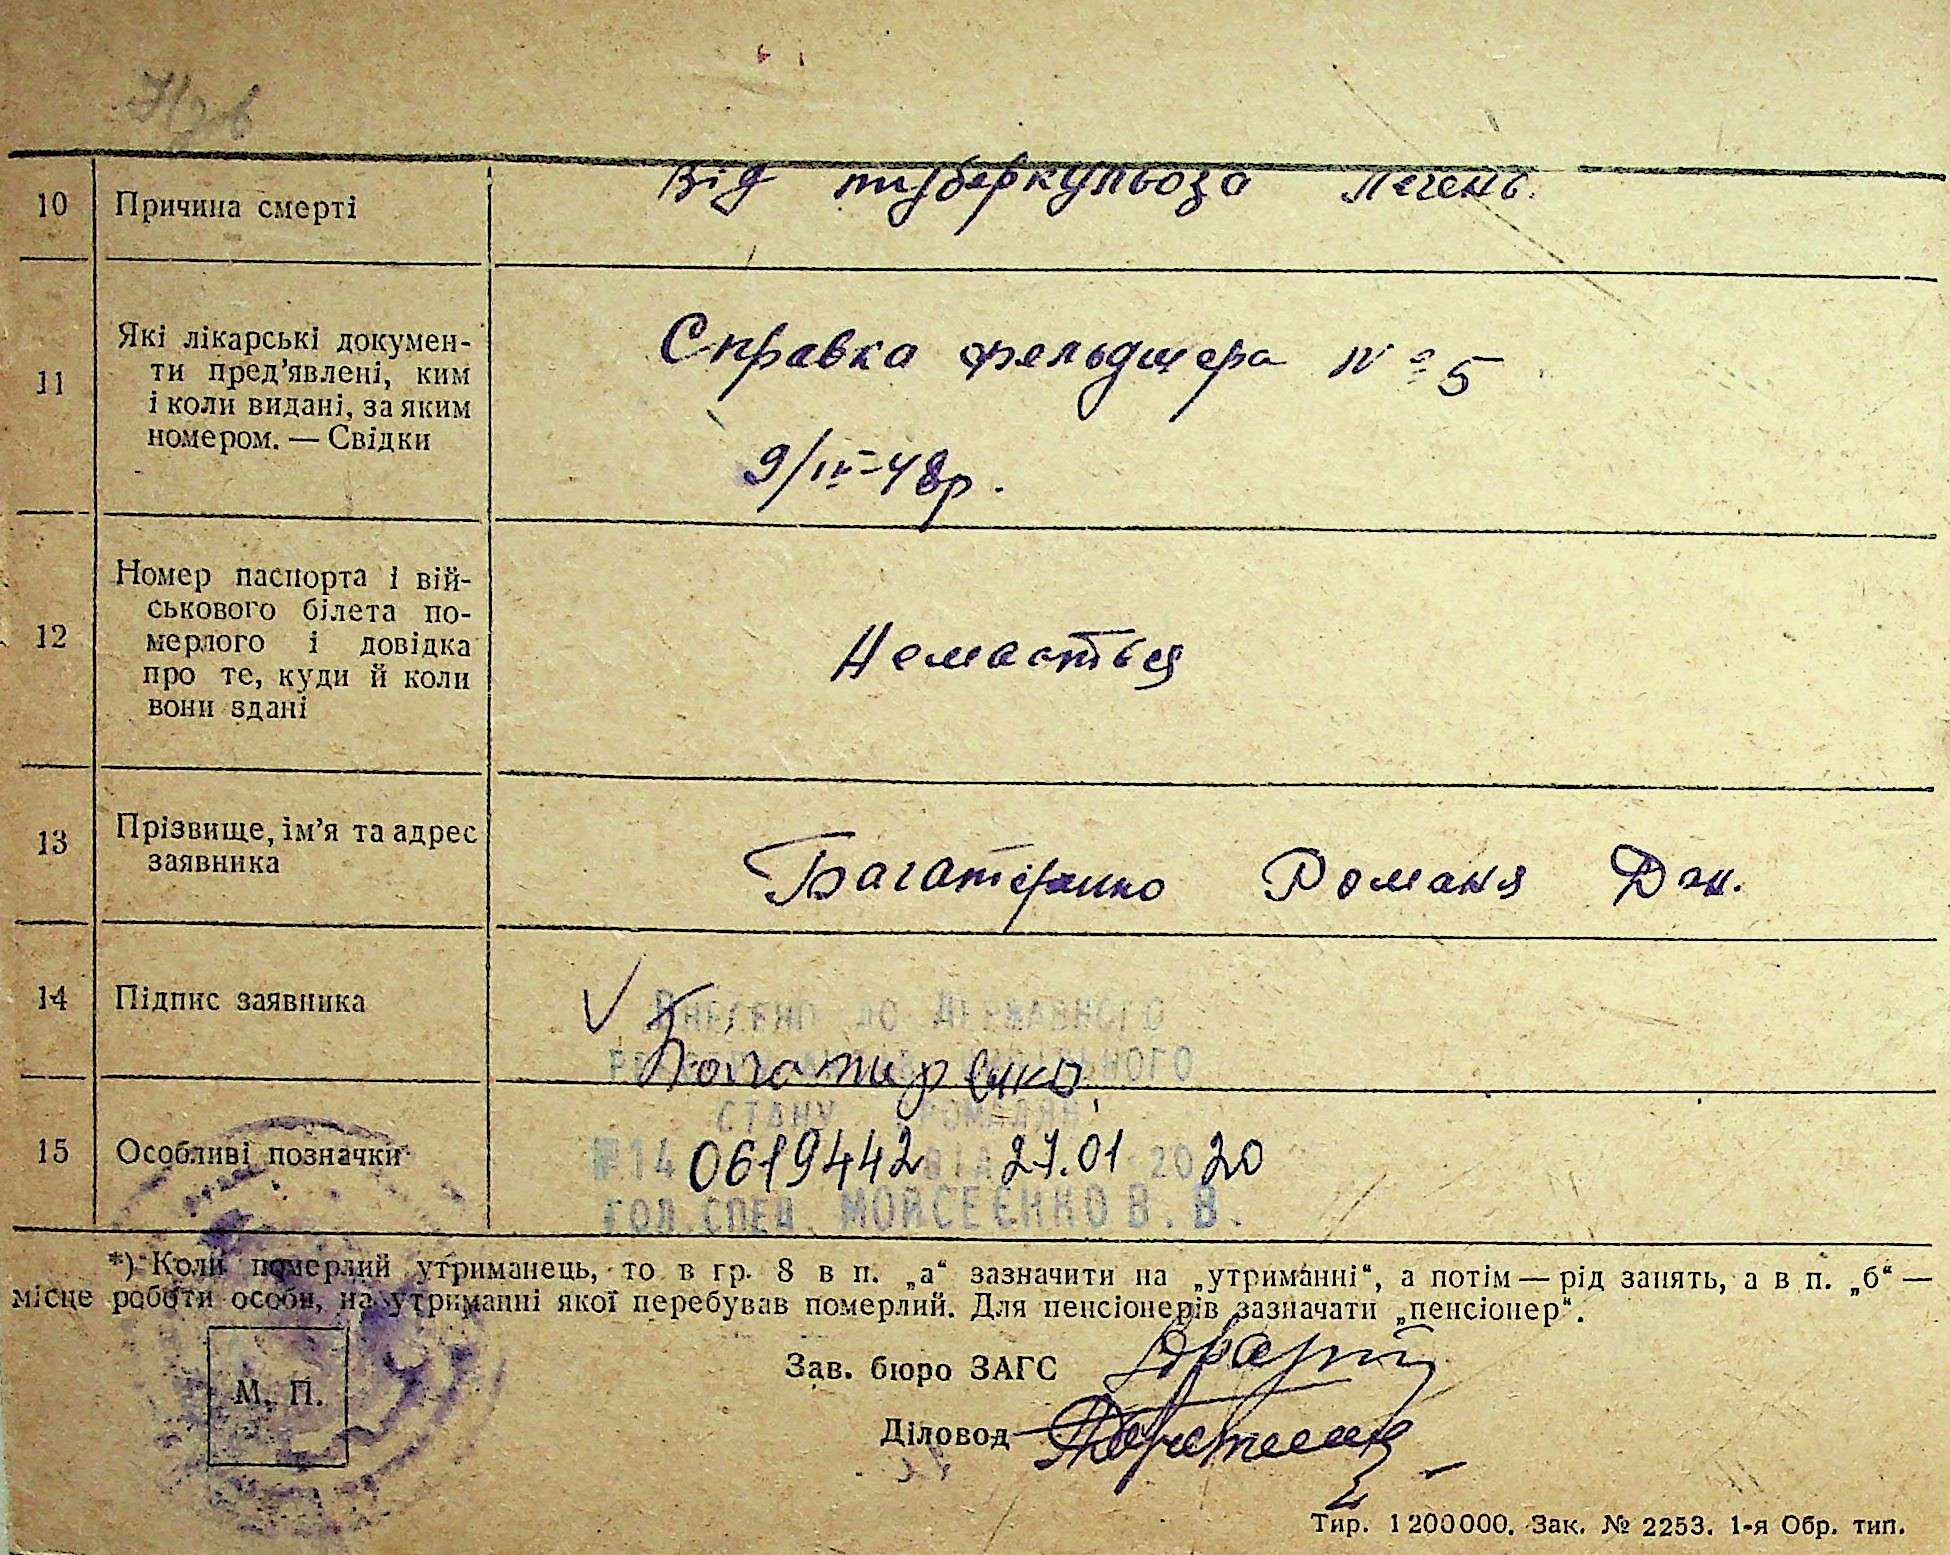 10 Причина смерті Від туберкульоза легень.
11 Які лікарські докумен-
ти пред’явлені, ким
і коли видані, за яким
номером. — Свідки
Справка фельдшера № 5
9/IV-48р.
12 Номер паспорта і вій-
ськового білета по-
мерлого і довідка
про те, куди й коли
вони здані
Немаеться
13 Прізвище, ім’я та адрес
заявника
Багатіренко Романя Дан.
14 Підпис заявника
Внесено до Державного
реєстру актів цивільного
стану громадян
Богатиренко
15 Особливі позначки
№ 14 0619442 від 27.01 2020
гол. спец. Мойсеєнко В. В.
*) Коли померлий утриманець, то в гр. 8 в п. „а“ зазначити на „утриманні“, а потім — рід занять, а в п. „б“ —
місце роботи особи, на утриманні якої перебував померлий. Для пенсіонерів зазначати „пенсіонер“.
Зав. бюро ЗАГС
М. П.
Діловод
Тир. 1200000. Зак. № 2253. 1-я Обр. тип.